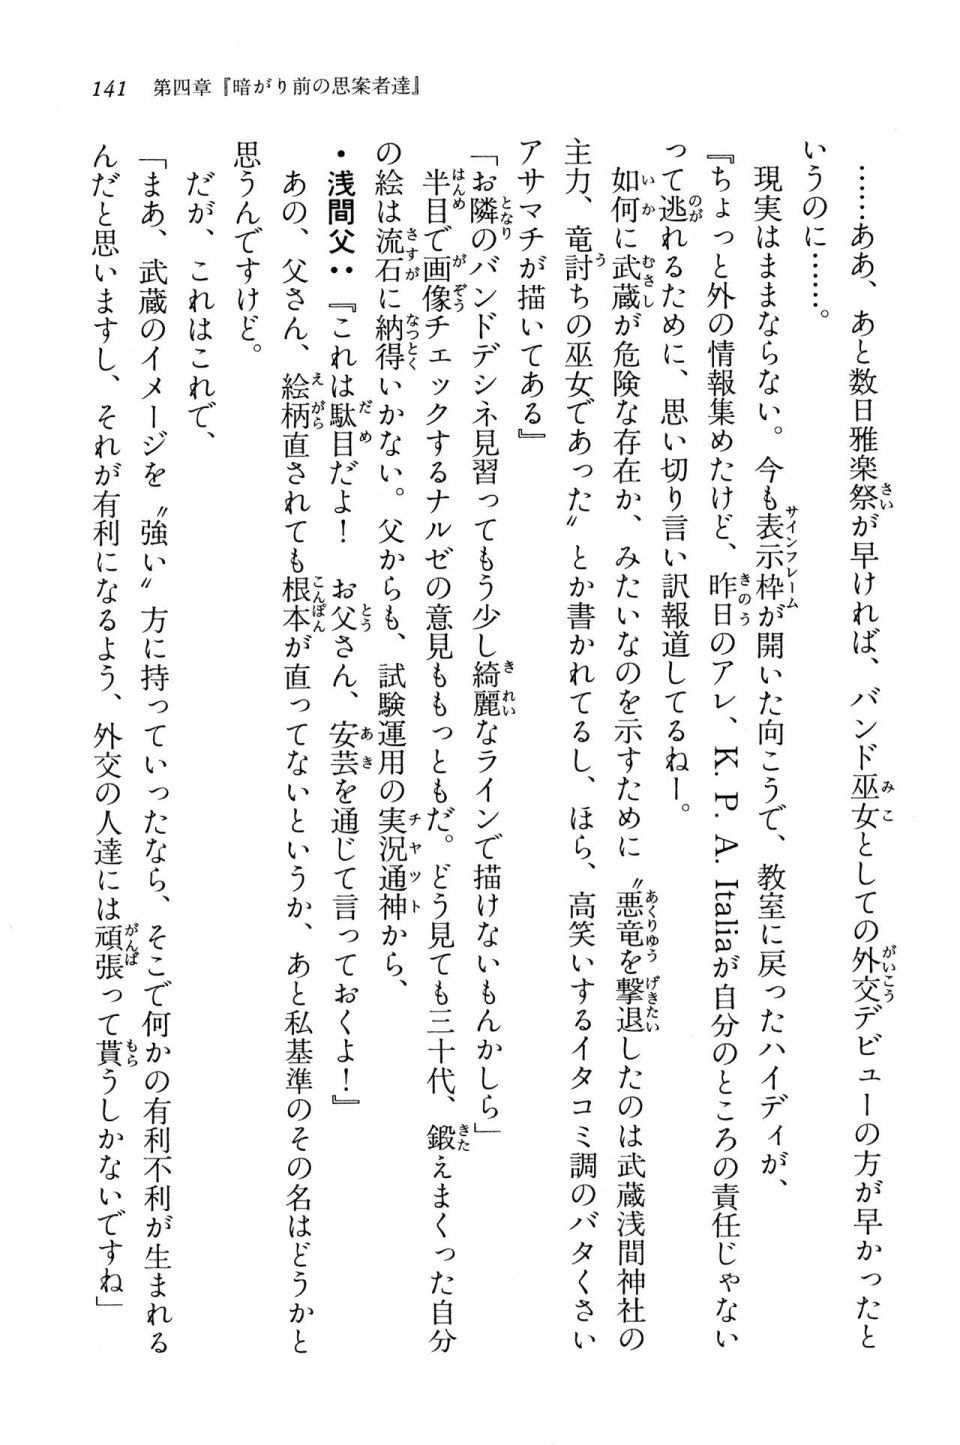 141　第四章『暗がり前の思案者達』
　……ああ、あと数日雅楽祭が早ければ、バンド巫女としての外交デビューの方が早かったと
いうのに……。
　現実はままならない。今も表示枠が開いた向こうで、教室に戻ったハイディが、
『ちょっと外の情報集めたけど、昨日のアレ、K.P.A.Italiaが自分のところの責任じゃない
って逃れるために、思い切り言い訳報道してるねー。
　如何に武蔵が危険な存在か、みたいなのを示すために〝悪竜を撃退したのは武蔵浅間神社の
主力、竜討ちの巫女であった〟とか書かれてるし、ほら、高笑いするイタコミ調のバタくさい
アサマチが描いてある』
「お隣のバンドデシネ見習ってもう少し綺麗なラインで描けないもんかしら」
　半目で画像チェックするナルゼの意見ももっともだ。どう見ても三十代、鍛えまくった自分
の絵は流石に納得いかない。父からも、試験運用の実況通神から、
・浅間父：『これは駄目だよ！　お父さん、安芸を通じて言っておくよ！』
　あの、父さん、絵柄直されても根本が直ってないというか、あと私基準のその名はどうかと
思うんですけど。
　だが、これはこれで、
「まあ、武蔵のイメージを〝強い〟方に持っていったなら、そこで何かの有利不利が生まれる
んだと思いますし、それが有利になるよう、外交の人達には頑張って貰うしかないですね」